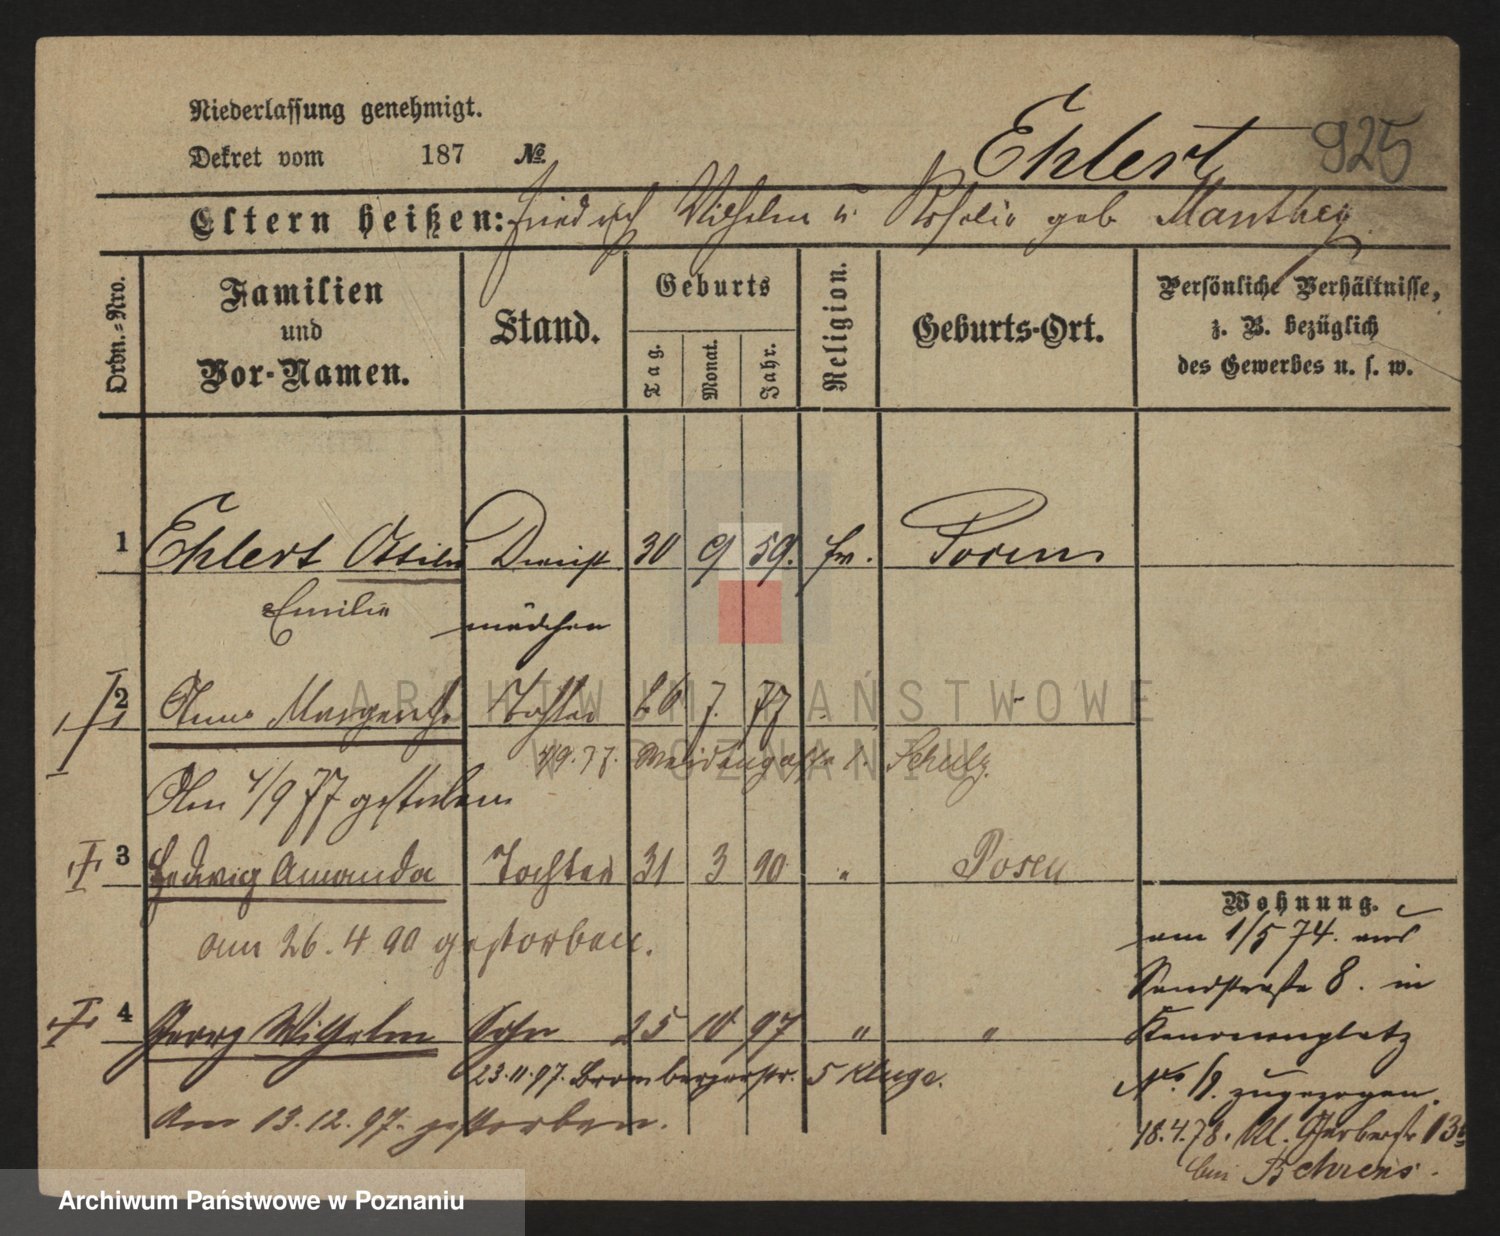 Niederlassung genehmigt.
Dekret vom 187 №
Ehlert
925
Eltern heißen: Friedrich Wilhelm u Rosalie geb Manthey
Ordn.-Nro.
Familien
und
Vor-Namen.
Stand.
Geburts
Tag.
Monat.
Jahr.
Religion.
Geburts-Ort.
Persönliche Verhältnisse,
z. B. bezüglich
des Gewerbes u. s. w.
1 Ehlert Ottilie Dienst 30 9 59. ev. Posen
Emilie mädchen
2 Anna Margarethe Tochter 7. 77
4/9.77. Schulz.
Am 4/9 77 gestorben
3 Hedwig Amanda Tochter 31 3 90 " Posen
am 26.4 90 gestorben.
4 Georg Wilhelm Sohn 25 10 97 " "
23.11.97. Brombergerstr. 5 Kluge.
Am 13.12.97. gestorben.
Wohnung.
am 1/5 74. aus
Sandstraße 8. in
Kanonenplatz
No. 9. zugezogen.
18.4.78. Kl. Gerberstr 13
bei Behrens.
ARCHIWUM PAŃSTWOWE
W POZNANIU
Archiwum Państwowe w Poznaniu